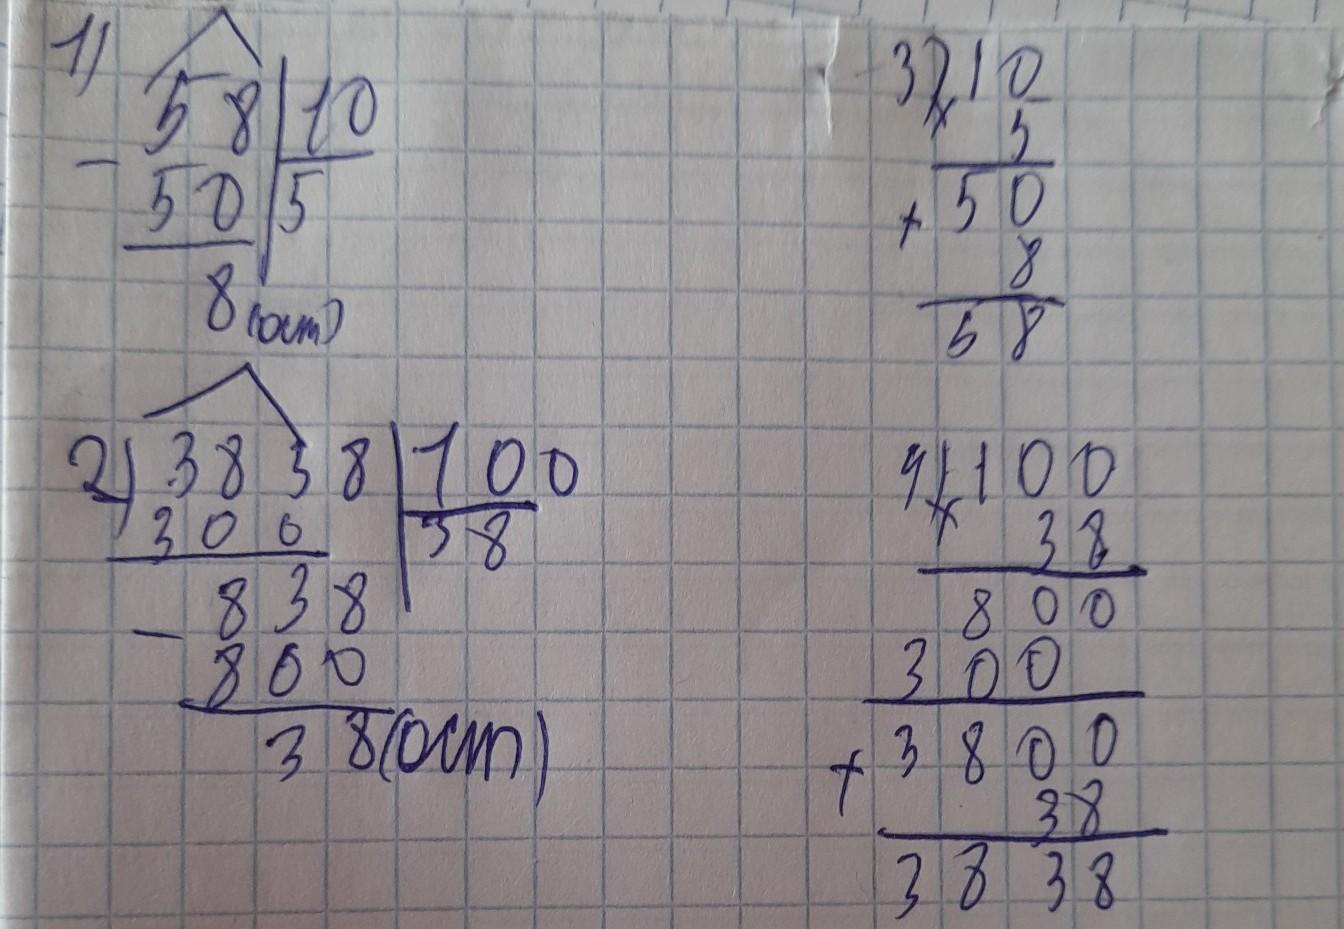 1)
58 | 10
- 50 | 5
8 (ост)
2) 3838 | 100
300 | 38
- 838
800
38 (ост)
3) 10
x 5
50
+ 8
58
4) 100
x 38
800
300
3800
+ 38
3838